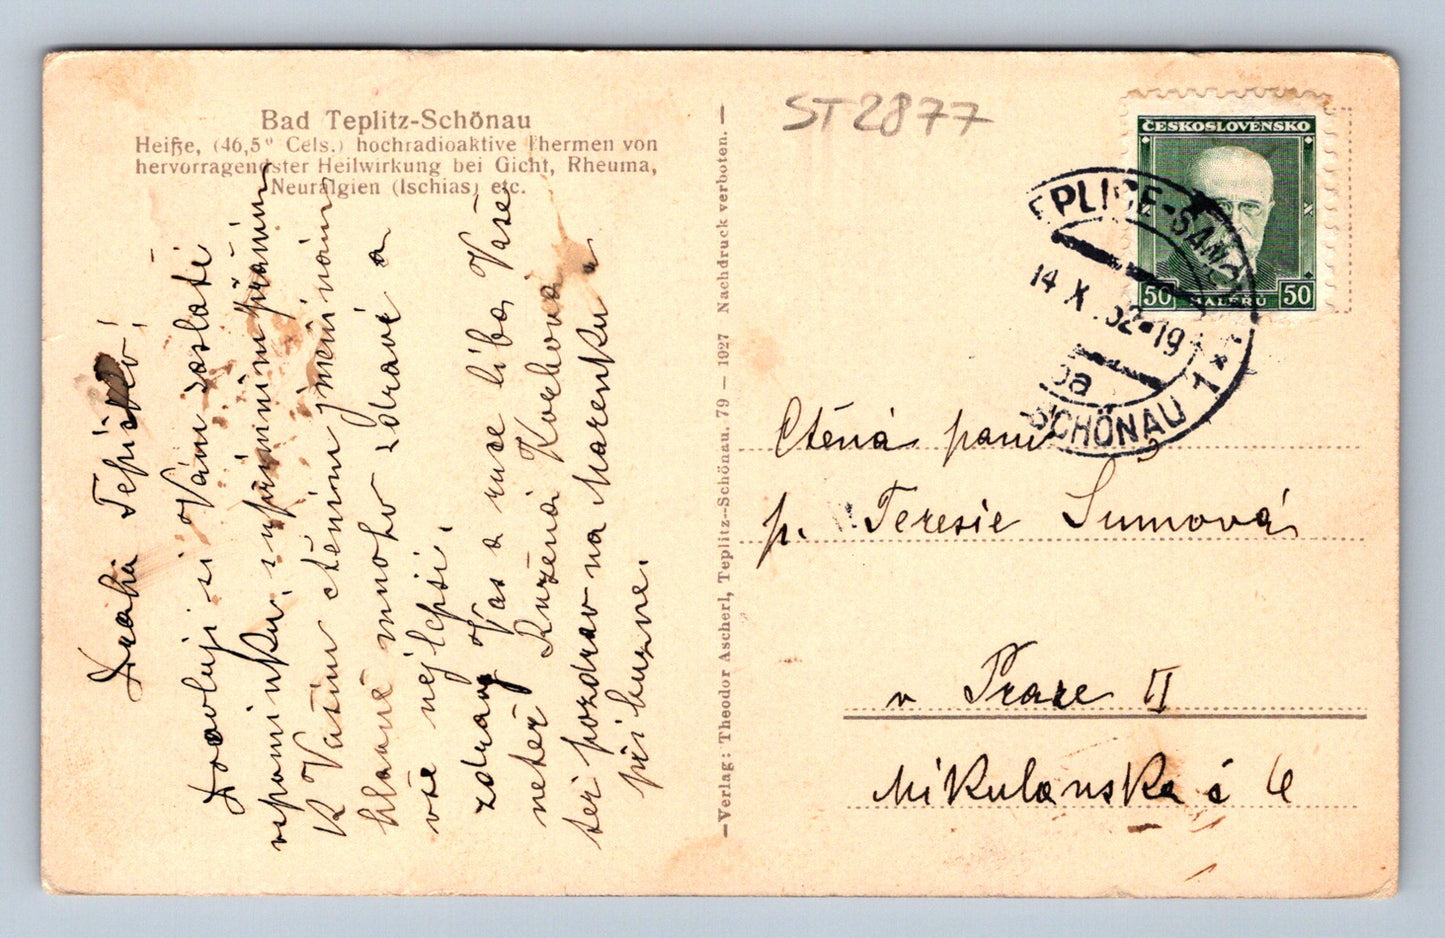 Bad Teplitz-Schönau
Heiße, (46,5° Cels.) hochradioaktive Thermen von
hervorragendster Heilwirkung bei Gicht, Rheuma,
Neuralgien (Ischias) etc.
Drahá
Dovoluji si Vám zaslati
vspomínku, upřímným přáním
K Vašim ctěním jmeninám
hlavně mnoho zdraví a
vše nejlepší.
zdraví Vás a ruce líbá Vaše
neteř Růžena
též pozdrav na Marenku a
příbuzne.
—Verlag: Theodor Ascherl, Teplitz-Schönau. 79 — 1927 Nachdruck verboten.—
ST2877
ČESKOSLOVENSKO
50 HALÉŘŮ 50
EPLICE-ŠANO
14 X .32-19
SCHÖNAU 1
Ctěná paní
p. Teresie Sumová
v Praze II
Mikulanska č 6